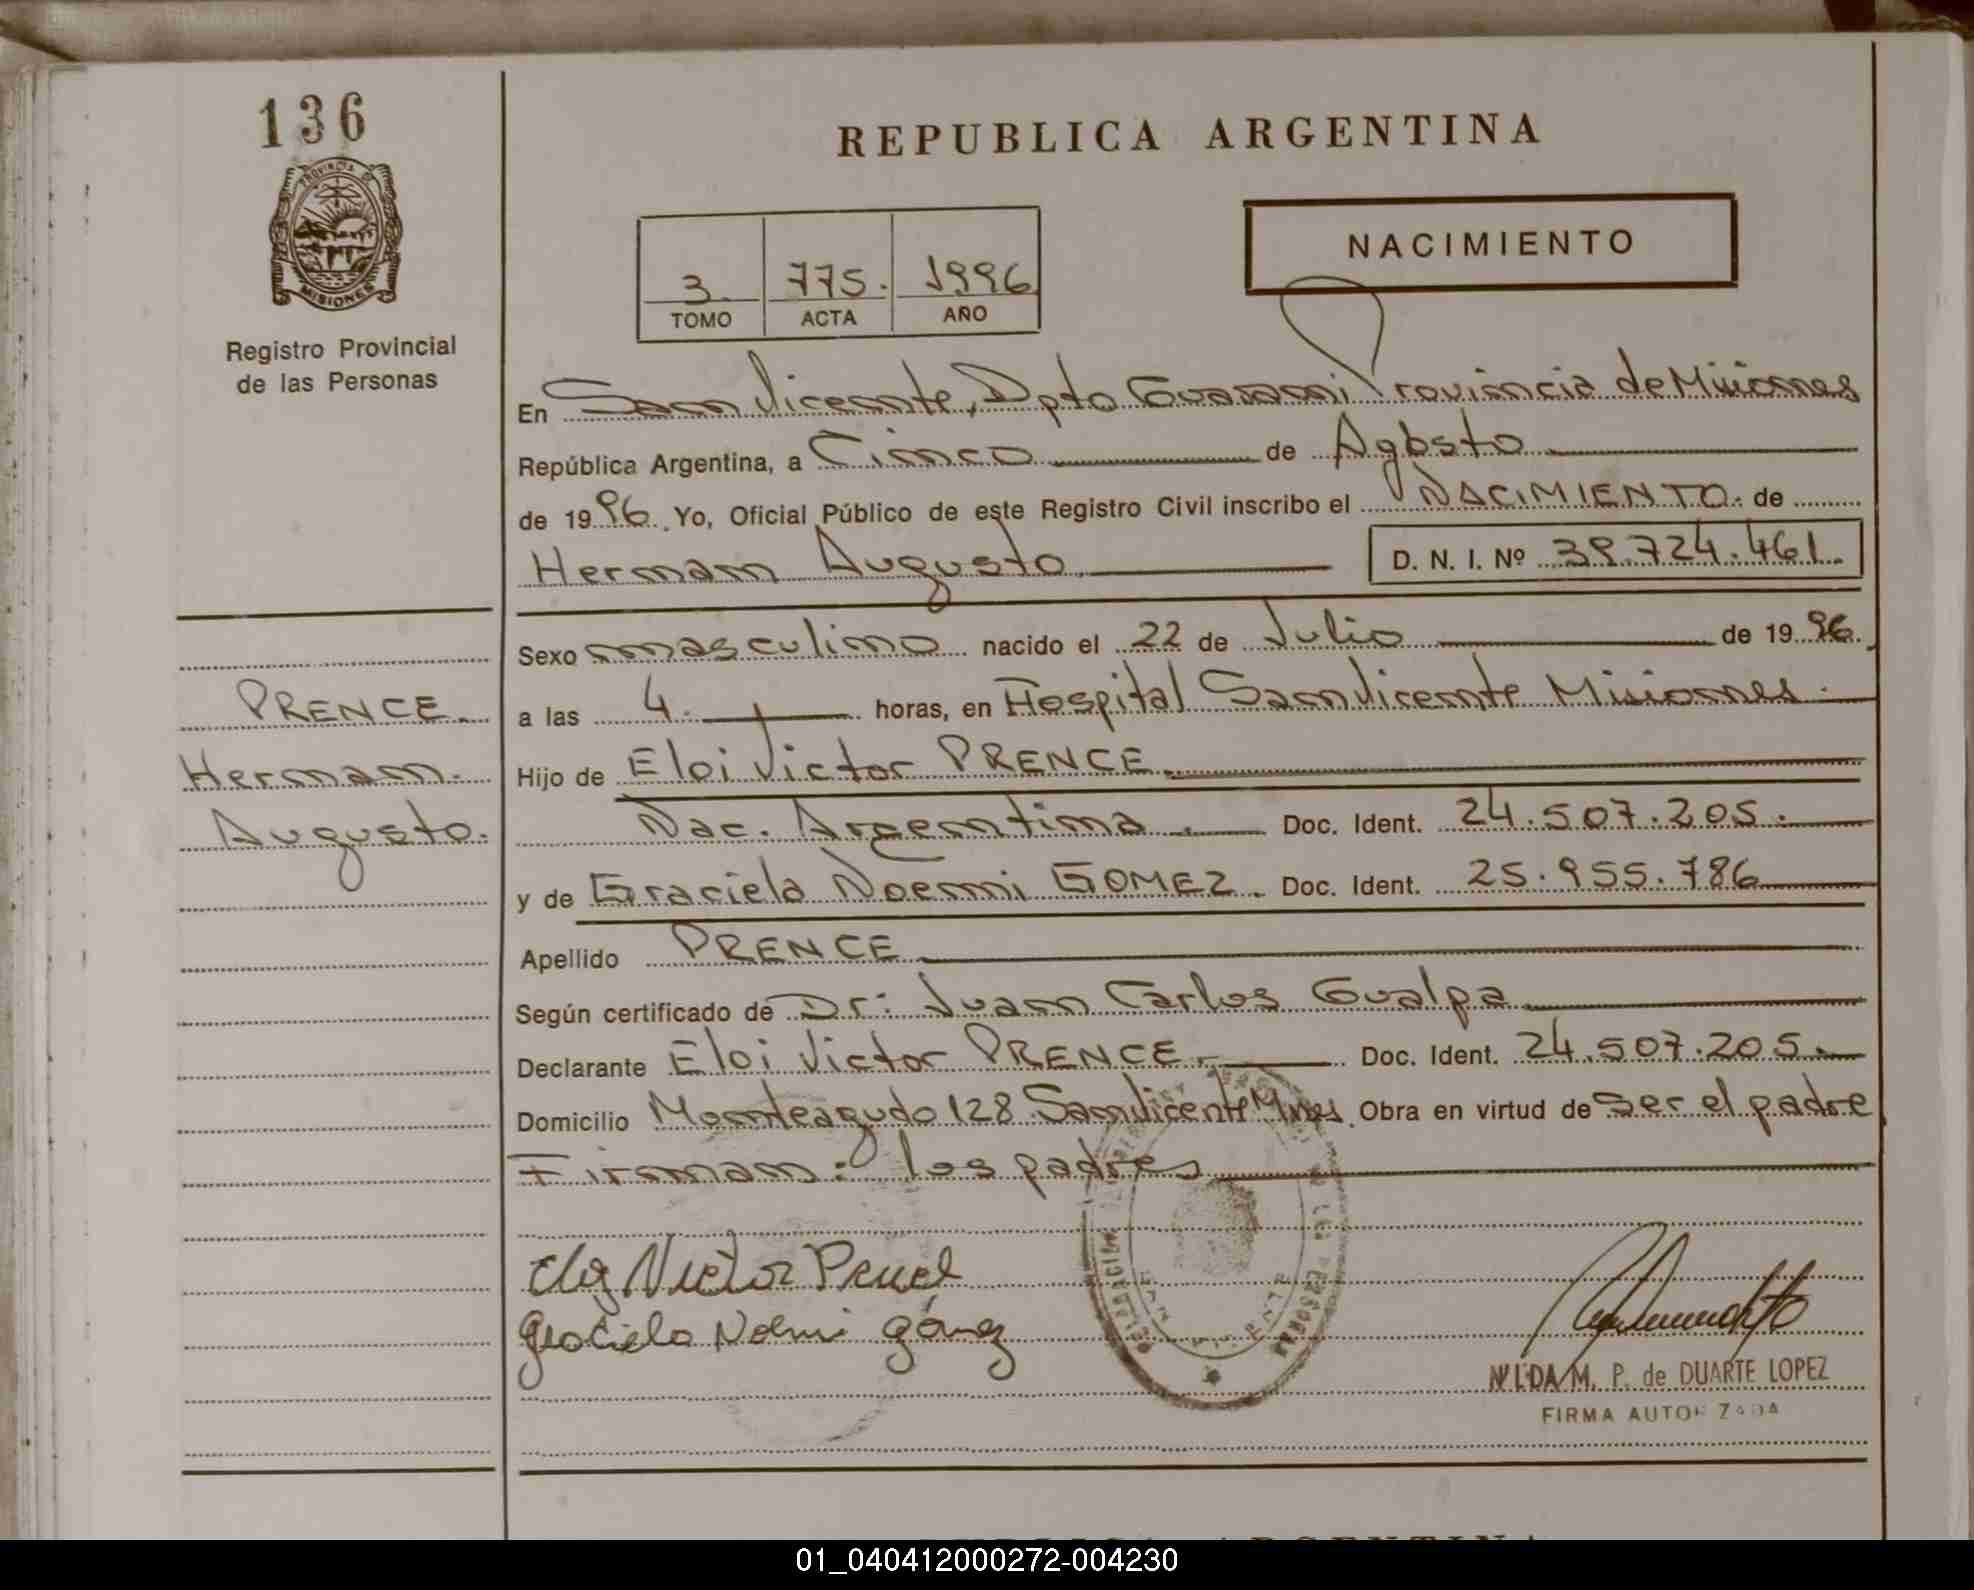 136
PROVINCIA D
MISIONES
Registro Provincial
de las Personas
REPUBLICA ARGENTINA
NACIMIENTO
3. 775. 1996
TOMO ACTA AÑO
En San Vicente, Dpto Guarani Provincia de Misiones
República Argentina, a Cinco de Agosto
de 1996. Yo, Oficial Público de este Registro Civil inscribo el NACIMIENTO. de
Hernan Augusto D. N. I. Nº 39.724.461.
Sexo masculino nacido el 22 de Julio de 1996.
a las 4. horas, en Hospital San Vicente Misiones.
Hijo de Eloi Victor PRENCE.
Nac. Argentina. Doc. Ident. 24.507.205.
y de Graciela Noemi GOMEZ. Doc. Ident. 25.955.786
Apellido PRENCE
Según certificado de Dr: Juan Carlos Gualpa
Declarante Eloi Victor PRENCE. Doc. Ident. 24.507.205.
Domicilio Monteagudo 128 San Vicente Mnes. Obra en virtud de Ser el padre
Firman: los padres
PRENCE.
Hernan.
Augusto.
Victor
Graciela Noemi Gómez
NILDA M. P. de DUARTE LOPEZ
FIRMA AUTORIZADA
REPUBLICA ARGENTINA
01_040412000272-004230